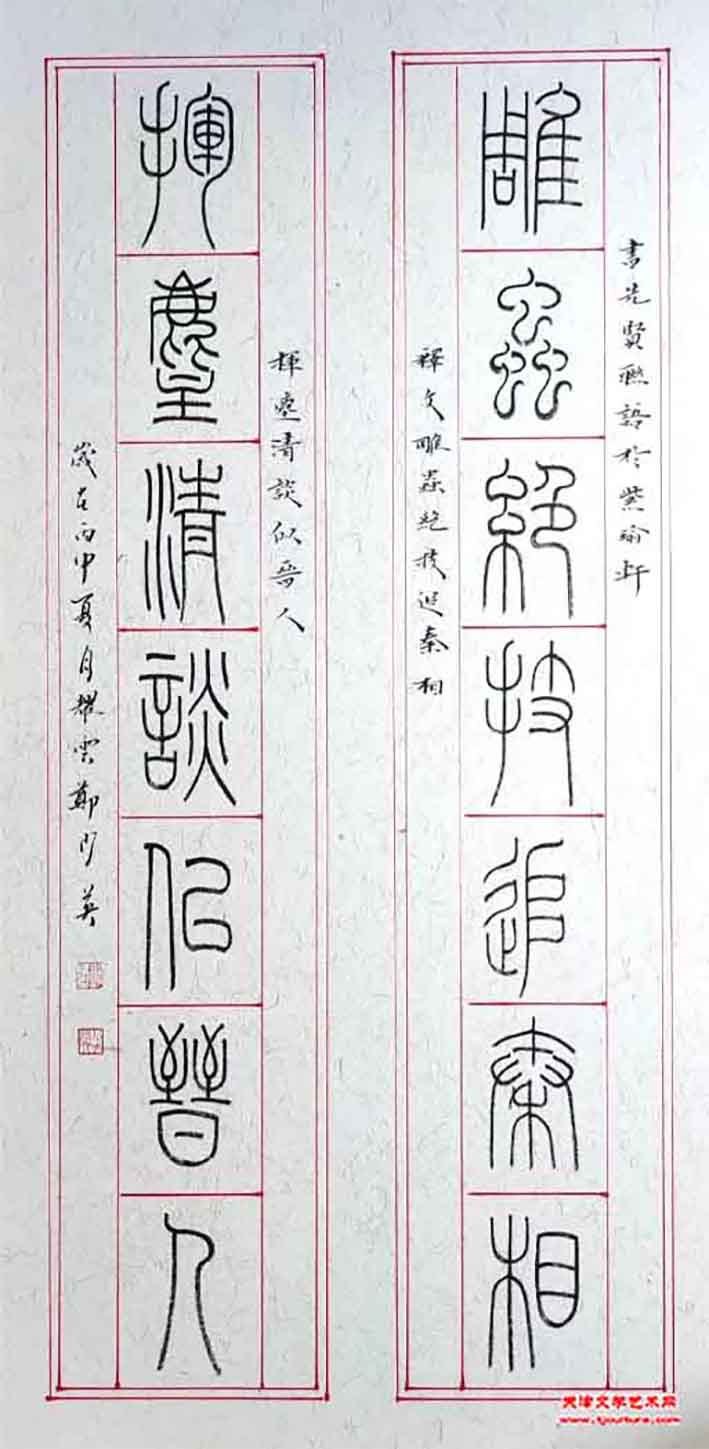 書先賢聯語於紫瑜軒
雕蟲絕技追秦相
釋文雕蟲絕技追秦相
揮麈清談似晉人
揮麈清談似晉人
歲在丙申夏月耀雲鄭英
天津文学艺术网